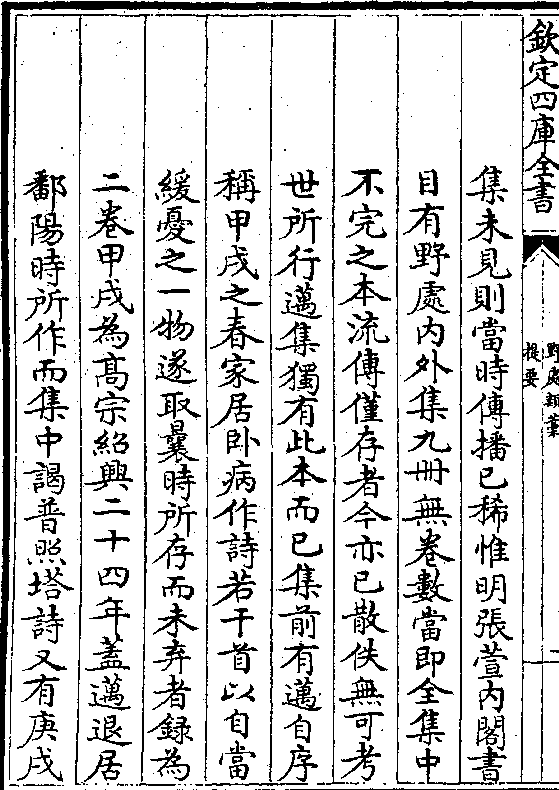 欽定四庫全書
野處類藁
提要
集未見則當時傳播已稀惟明張萱內閣書
目有野處內外集九冊無卷數當即全集中
不完之本流傳僅存者今亦已散佚無可考
世所行邁集獨有此本而已集前有邁自序
稱甲戌之春家居卧病作詩若干首以自當
緩憂之一物遂取曩時所存而未弃者錄為
二卷甲戌為髙宗紹興二十四年蓋邁退居
鄱陽時所作而集中謁普照塔詩又有庚戌